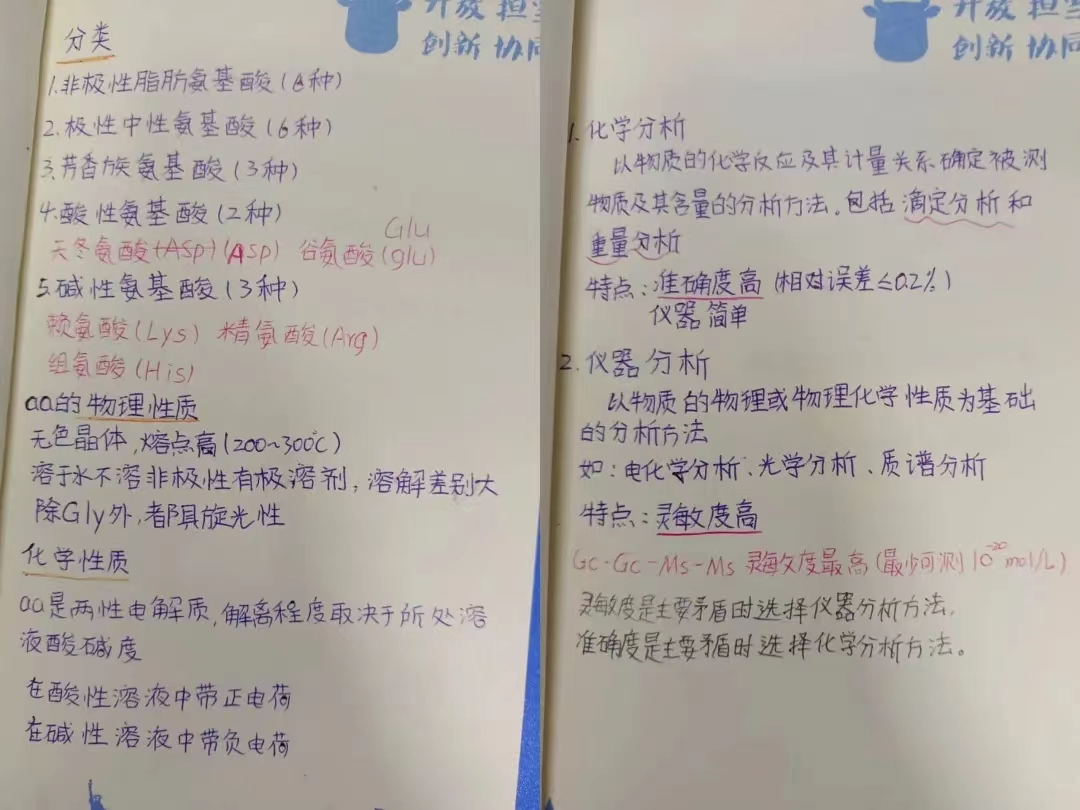 开放 担当
创新 协同
分类
1.非极性脂肪氨基酸(6种)
2.极性中性氨基酸(6种)
3.芳香族氨基酸(3种)
4.酸性氨基酸(2种)
Glu
天冬氨酸(ASP)(ASP) 谷氨酸(glu)
5.碱性氨基酸(3种)
赖氨酸(Lys) 精氨酸(Arg)
组氨酸(His)
aa的物理性质
无色晶体,熔点高(200~300℃)
溶于水不溶非极性有极溶剂,溶解差别大
除Gly外,都具旋光性
化学性质
aa是两性电解质,解离程度取决于所处溶
液酸碱度
在酸性溶液中带正电荷
在碱性溶液中带负电荷
开放 担当
创新 协同
1.化学分析
以物质的化学反应及其计量关系确定被测
物质及其含量的分析方法。包括滴定分析和
重量分析
特点:准确度高(相对误差≤0.2%)
仪器简单
2.仪器分析
以物质的物理或物理化学性质为基础
的分析方法
如:电化学分析、光学分析、质谱分析
特点:灵敏度高
Gc-Gc-Ms-Ms 灵敏度最高(最少可测10⁻²⁰mol/L)
灵敏度是主要矛盾时选择仪器分析方法,
准确度是主要矛盾时选择化学分析方法。